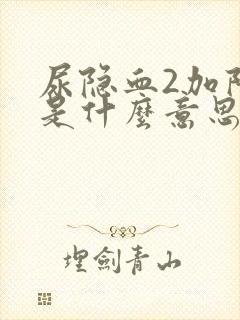 尿隐血2加阳
是什麼意思
埋劍青山